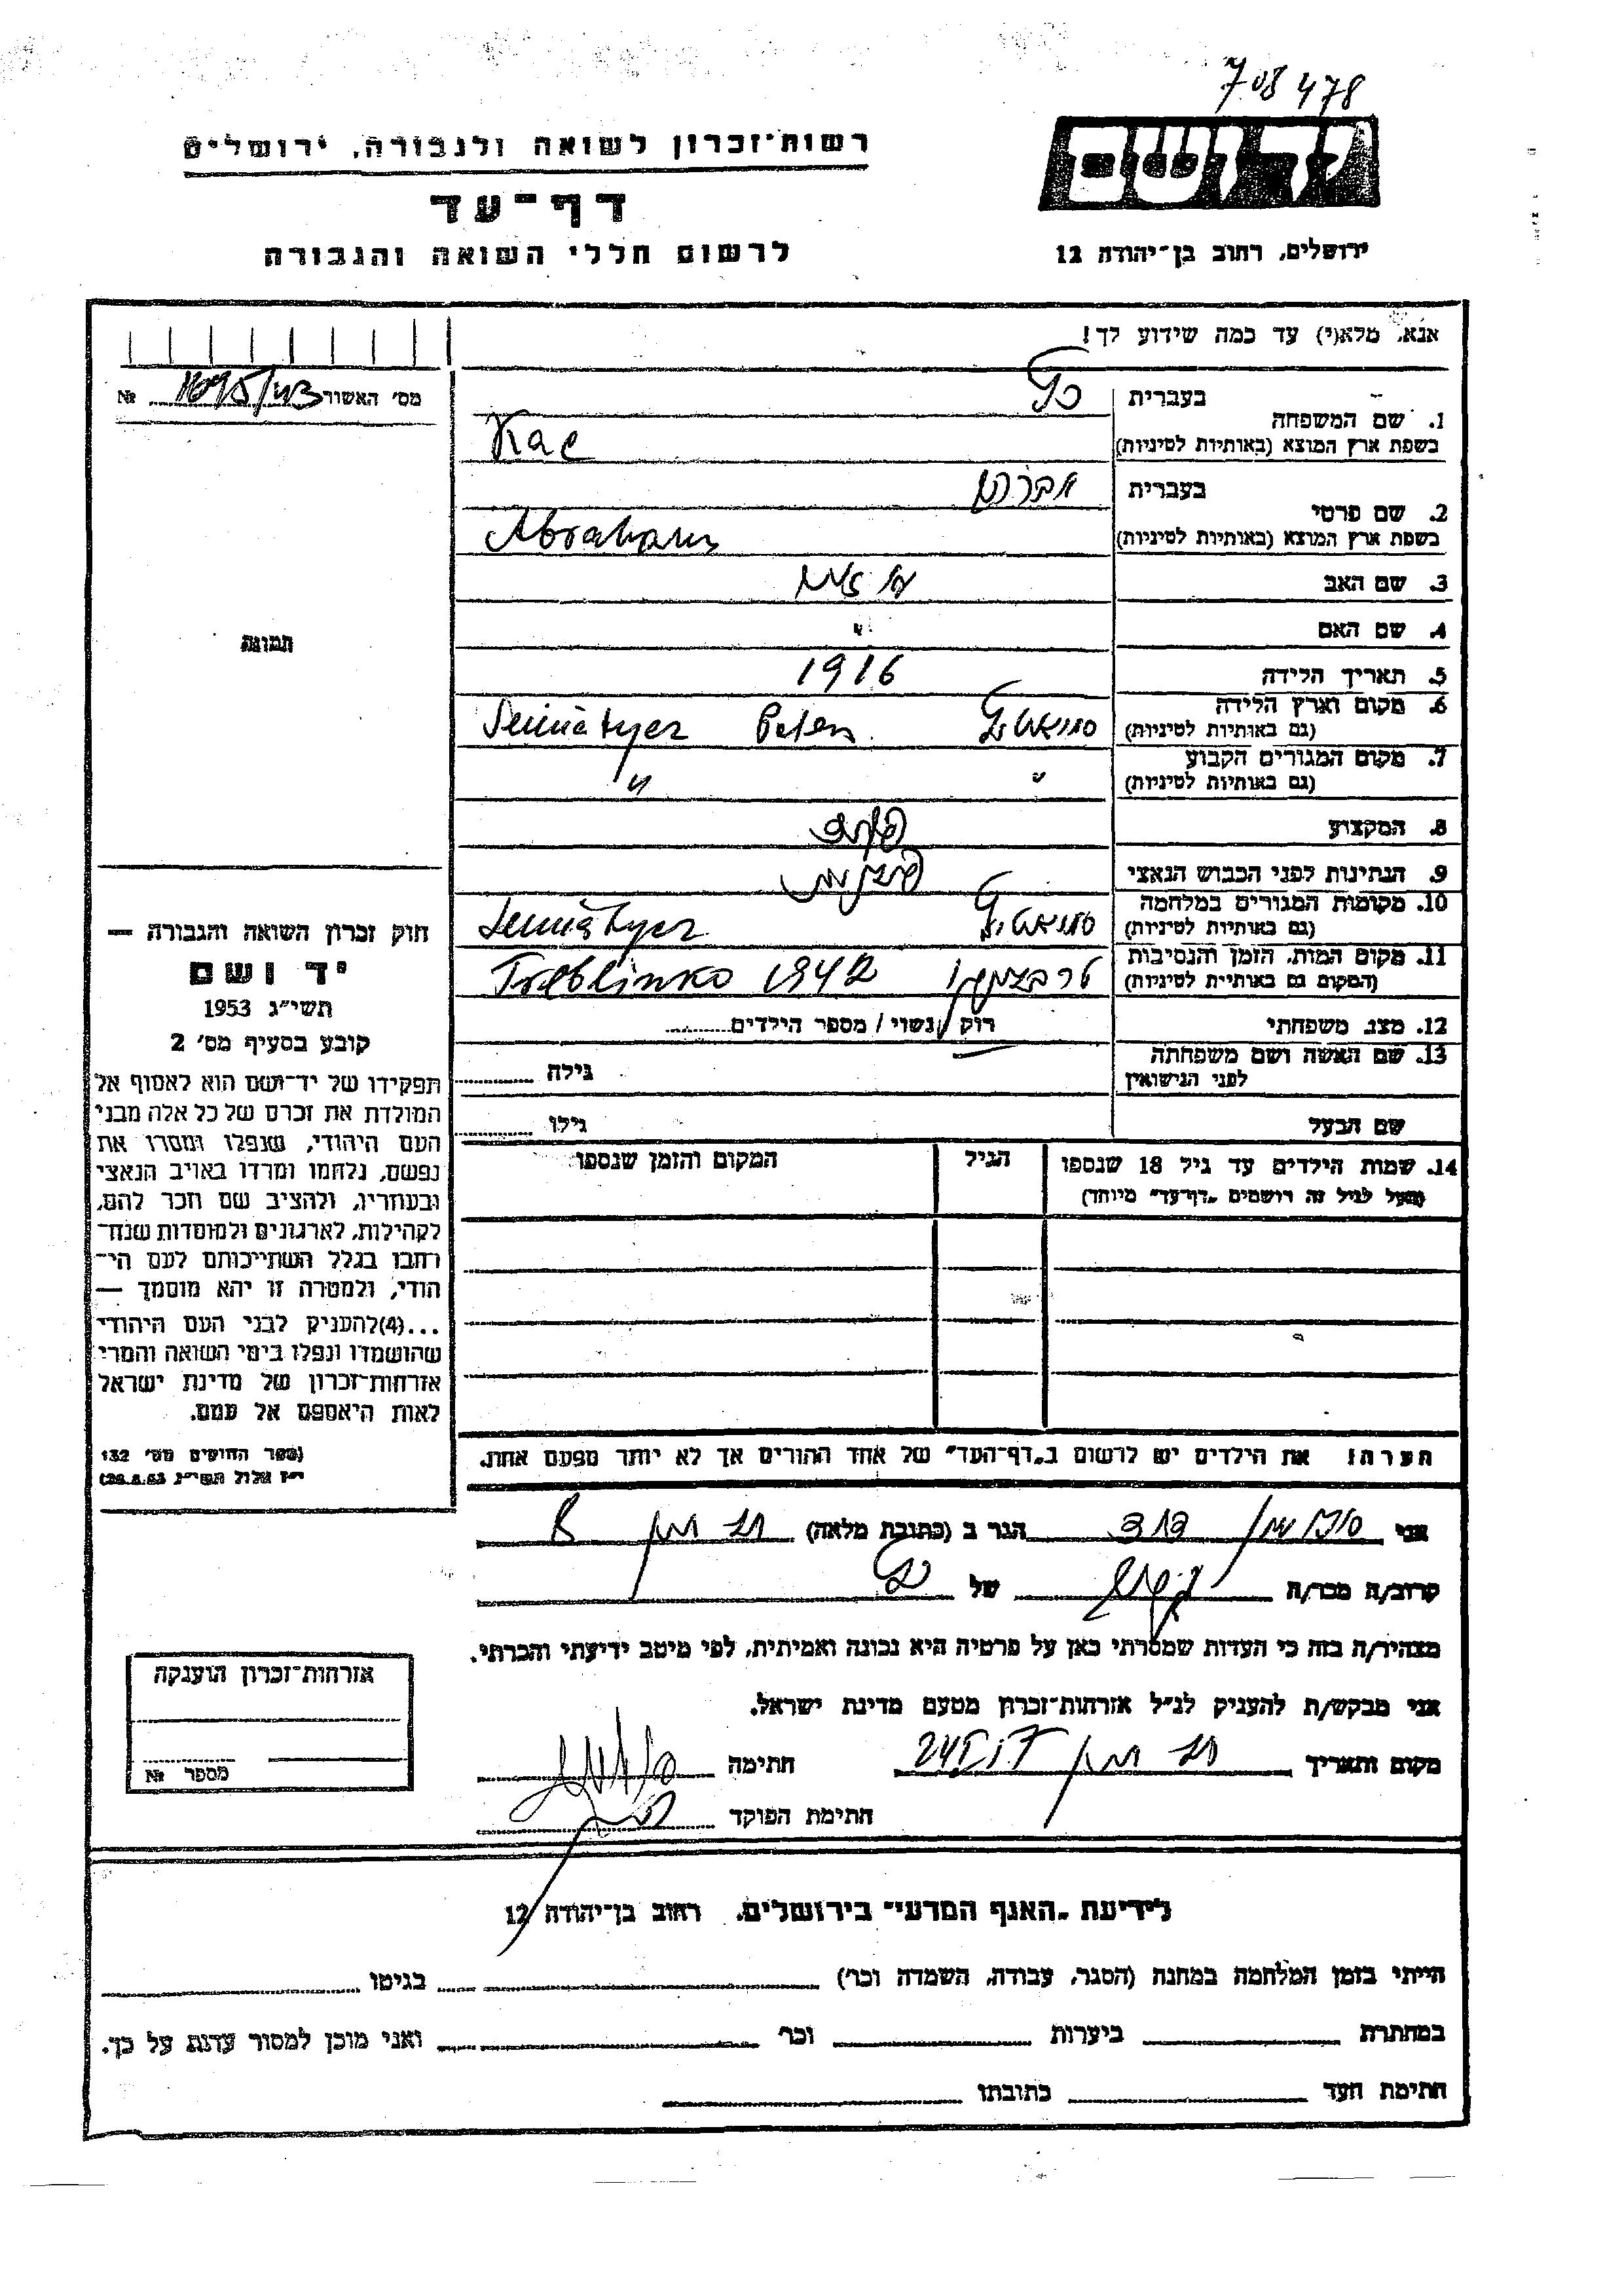 708478
רשות־זכרון לשואה ולגבורה, ירושלים
יד ושם
דף־עד
לרשום חללי השואה והגבורה
ירושלים, רחוב בן־יהודה 12
אנא, מלא(י) עד כמה שידוע לך!
מס׳ האשור №
בעברית כץ
1. שם המשפחה
בשפת ארץ המוצא (באותיות לטיניות) Kac
בעברית אברהם
2. שם פרטי
בשפת ארץ המוצא (באותיות לטיניות) Abraham
3. שם האב
4. שם האם
5. תאריך הלידה 1916
6. מקום וארץ הלידה
(גם באותיות לטיניות)
7. מקום המגורים הקבוע
(גם באותיות לטיניות) " "
8. המקצוע
9. הנתינות לפני הכבוש הנאצי
10. מקומות המגורים במלחמה
(גם באותיות לטיניות)
11. מקום המות, הזמן והנסיבות
(המקום גם באותיות לטיניות) טרבלינקה Treblinka 1942
12. מצב משפחתי רוק / נשוי / מספר הילדים
13. שם האשה ושם משפחתה
לפני הנישואין גילה
שם הבעל גילו
14. שמות הילדים עד גיל 18 שנספו הגיל המקום והזמן שנספו
(מעל לגיל זה רושמים „דף־עד" מיוחד)
תמונה
חוק זכרון השואה והגבורה —
יד ושם
תשי״ג 1953
קובע בסעיף מס׳ 2
תפקידו של יד־ושם הוא לאסוף אל
המולדת את זכרם של כל אלה מבני
העם היהודי, שנפלו ומסרו את
נפשם, נלחמו ומרדו באויב הנאצי
ובעוזריו, ולהציב שם וזכר להם,
לקהילות, לארגונים ולמוסדות שנח־
רבו בגלל השתייכותם לעם הי־
הודי, ולמטרה זו יהא מוסמך —
...(4)להעניק לבני העם היהודי
שהושמדו ונפלו בימי השואה והמרי
אזרחות־זכרון של מדינת ישראל
לאות היאספם אל עמם.
(ספר החוקים מס׳ 132
י״ז אלול תשי״ג, 28.8.53)
הערה: את הילדים יש לרשום ב„דף־העד" של אחד ההורים אך לא יותר מפעם אחת.
אני הגר ב (כתובת מלאה)
קרוב/ה מכר/ה של
מצהיר/ה בזה כי העדות שמסרתי כאן על פרטיה היא נכונה ואמיתית, לפי מיטב ידיעתי והכרתי.
אני מבקש/ת להעניק לנ״ל אזרחות־זכרון מטעם מדינת ישראל.
מקום ותאריך חתימה
חתימת הפוקד
אזרחות־זכרון הוענקה
מספר №
לידיעת „האגף המדעי" בירושלים, רחוב בן־יהודה 12
הייתי בזמן המלחמה במחנה (הסגר, עבודה, השמדה וכו׳) בגיטו
במחתרת ביערות וכו׳ ואני מוכן למסור עדות על כך.
חתימת העד כתובתו